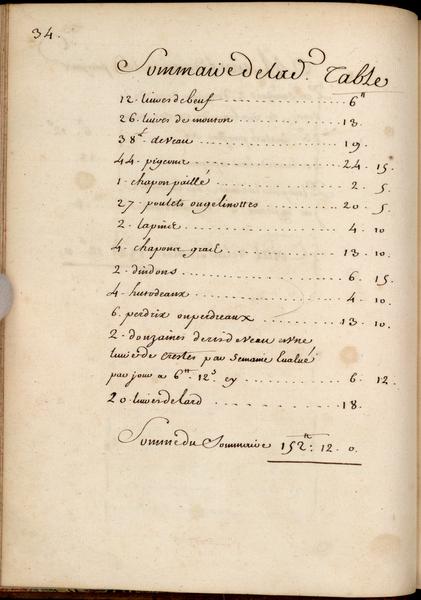 34.
Sommaire de lad. Table
12. livres de beuf .......... 6ᴴ
26. livres de mouton .......... 13.
38ᴸ. de veau .......... 19.
44. pigeons .......... 24. 15.
1. chapon paillé .......... 2. 5.
27. poulets ou gelinottes .......... 20. 5.
2. lapins .......... 4. 10
4. chapons gras .......... 13. 10.
2. dindons .......... 6. 15.
4. hutodeaux .......... 4. 10.
6. perdrix ou perdreaux .......... 13. 10.
2. douzaines de ris de veau et une
livre de crestes par semaine evalué
par jour a 6ᴴ. 12ˢ cy .......... 6. 12.
20 livres de lard .......... 18.
Somme du Sommaire 152ᴴ: 12. 0.